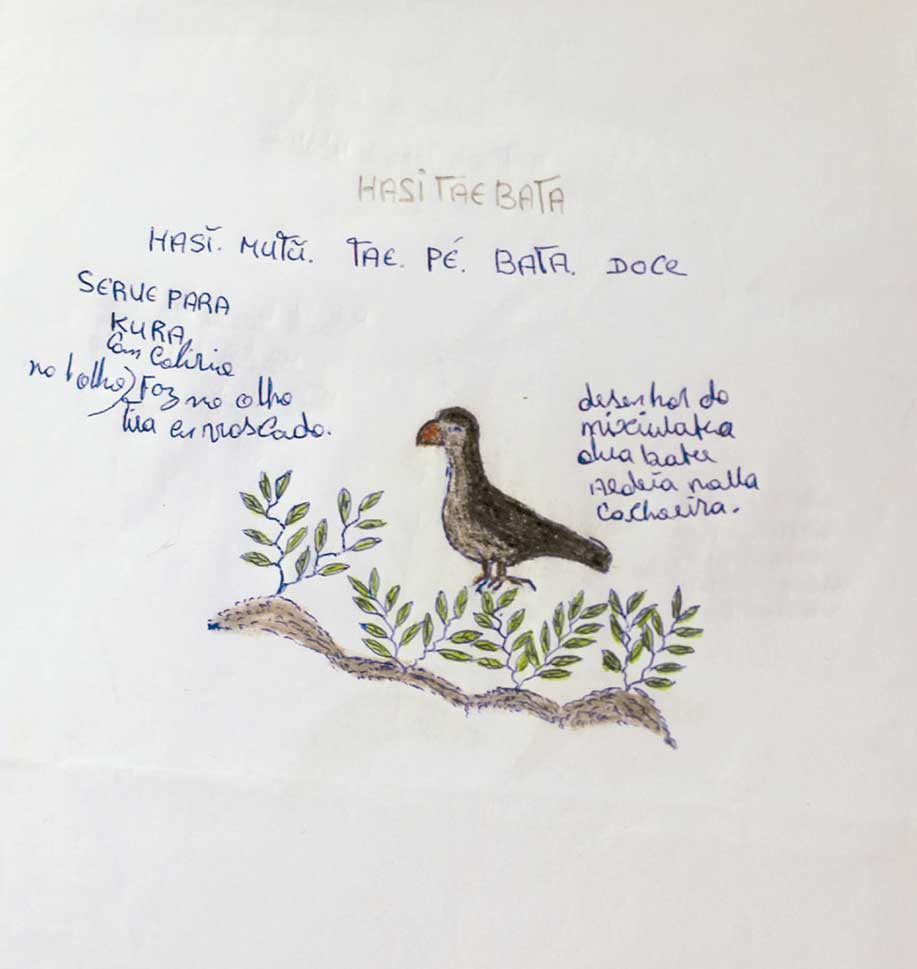 HASĨ TAE BATA
HASĨ. MUTŨ. TAE. PÉ. BATA. DOCE
SERVE PARA
KURA
Com Colirio
no olho Foz no olho
tira enroscado.
desenhol do
mixiulatua
dua batu
Aldeia nalla
Cachoeira.